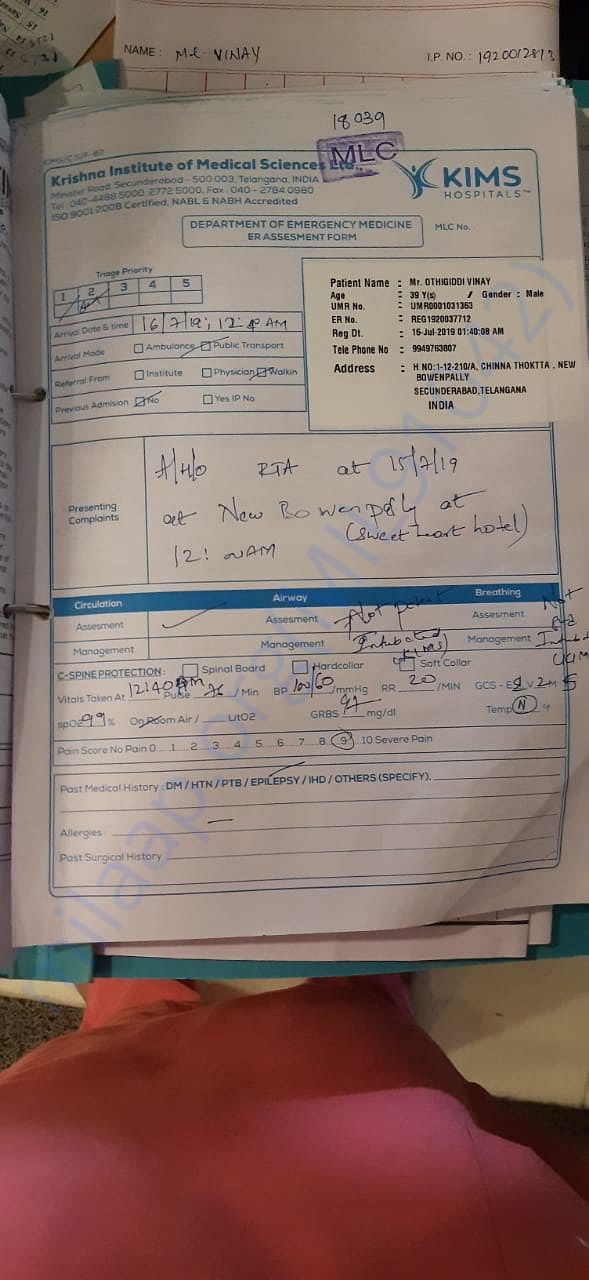 NAME : Mr. VINAY
I.P. NO. : 1920012813
18039
MLC
KIMS/CS/F-62
Krishna Institute of Medical Sciences Ltd.,
Minister Road, Secunderabad - 500 003, Telangana, INDIA
Tel : 040-4488 5000, 2772 5000, Fax : 040 - 2784 0980
ISO 9001-2008 Certified, NABL & NABH Accredited
KIMS
HOSPITALS™
DEPARTMENT OF EMERGENCY MEDICINE
ER ASSESMENT FORM
MLC No.
Triage Priority
1 2 3 4 5
Arrival Date & time 16/7/19; 12: AM
Arrival Mode Ambulance Public Transport
Referral From Institute Physician Walkin
Previous Admision No Yes IP No
Patient Name : Mr. OTHIGIDDI VINAY
Age : 39 Y(s) / Gender : Male
UMR No. : UMR0001031363
ER No. : REG1920037712
Reg Dt. : 16-Jul-2019 01:40:08 AM
Tele Phone No : 9949763807
Address : H NO:1-12-210/A, CHINNA THOKTTA , NEW
BOWENPALLY
SECUNDERABAD,TELANGANA
INDIA
Presenting
Complaints
A/H/O RTA at 15/7/19
at New Bowenpally at
(sweet heart hotel)
12: AM
Circulation Airway Breathing
Assesment Assesment Not patent Assesment Not
Management Management Intubated (KIMS) Management
C-SPINE PROTECTION : Spinal Board Hardcollar Soft Collar
Vitals Taken At 12:40 AM Pulse 76 /Min BP 100/60 mmHg RR 20 /MIN GCS - E V 2 M 5
spO2 99 % On Room Air / Lit O2 GRBS mg/dl Temp N °F
Pain Score No Pain 0 1 2 3 4 5 6 7 8 9 10 Severe Pain
Past Medical History : DM / HTN / PTB / EPILEPSY / IHD / OTHERS (SPECIFY).
Allergies : —
Past Surgical History